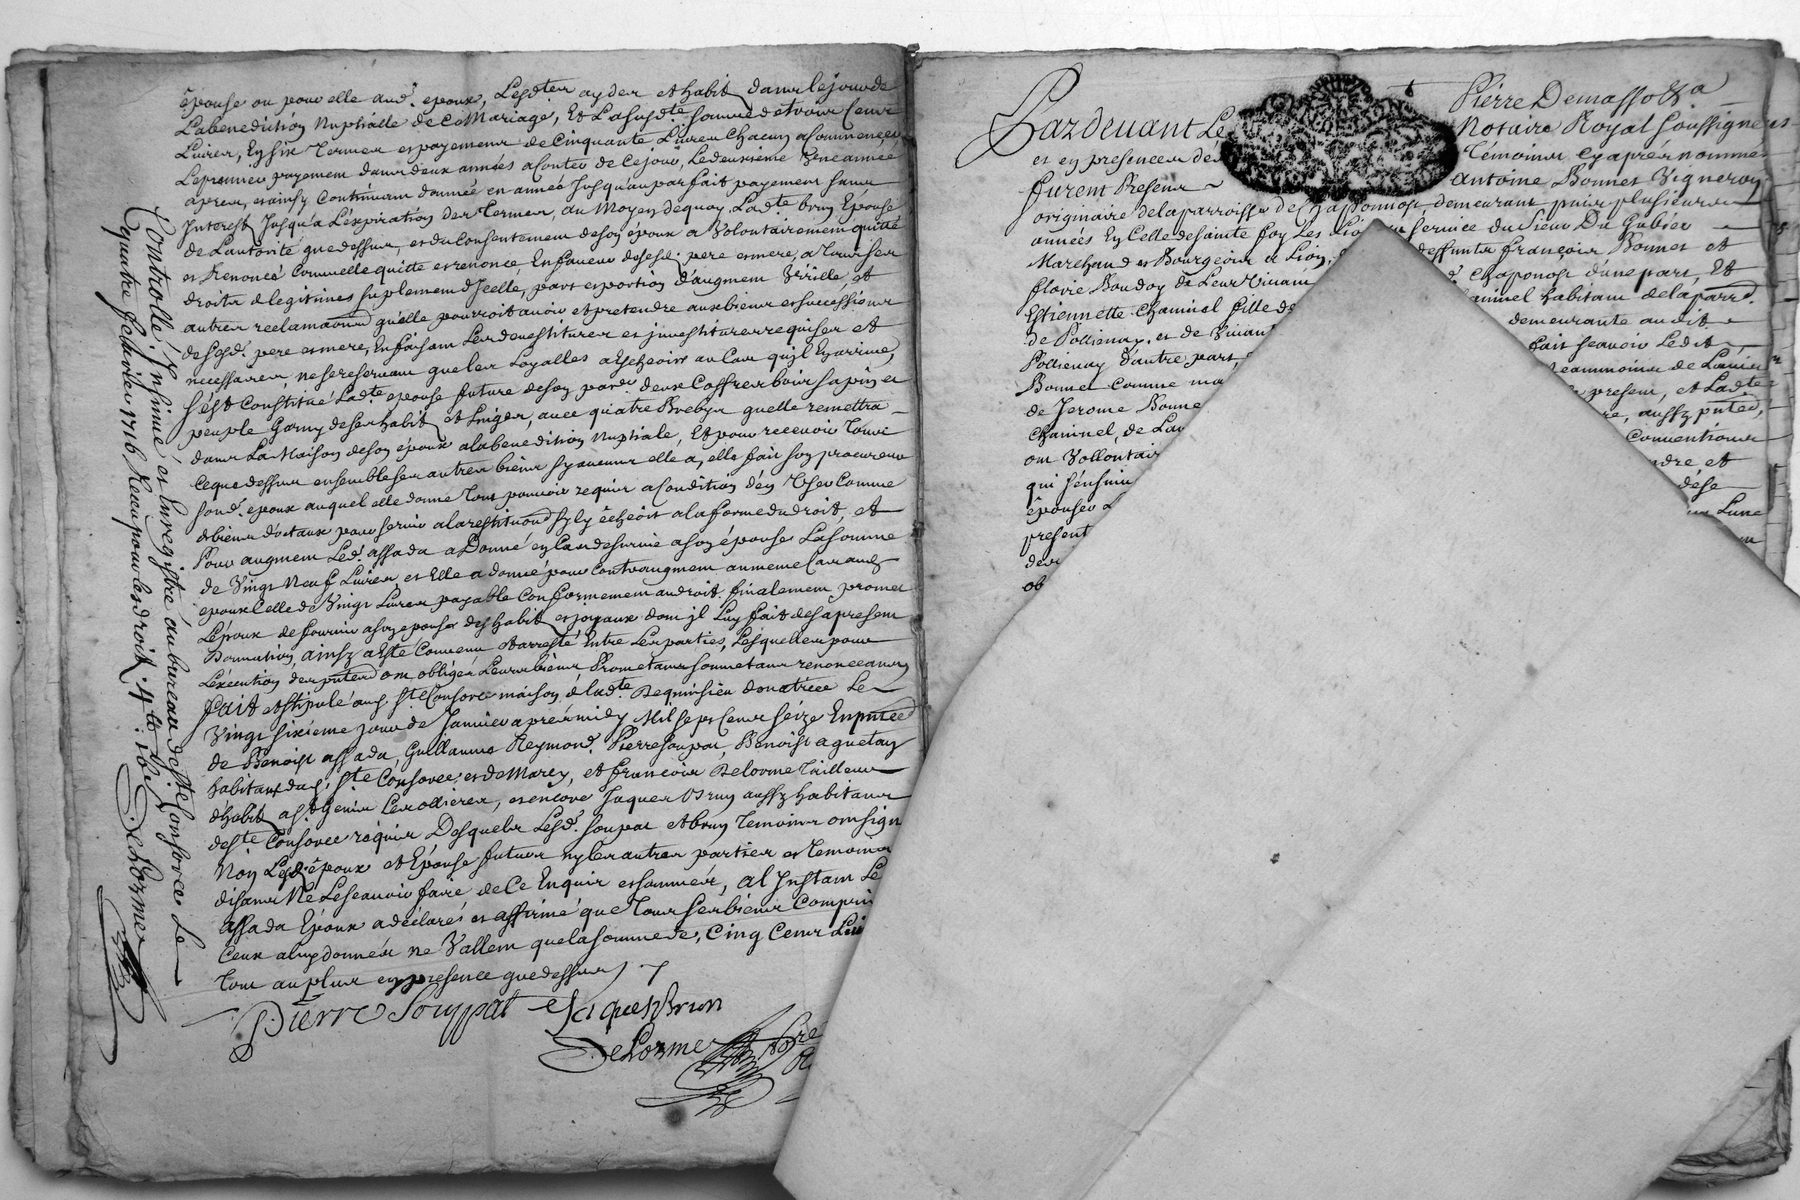 épouse ou pour elle aud. epoux, Lesd. ayder et habit dans le jour de
La benediction Nuptialle de ce Mariage, Et La susd.te somme de trois Cens
Livres, En six Termes et payemens de Cinquante Livres Chacun a Commencer
Le premier payement dans deux années a Conter de ce jour, Le deuxieme Une année
apres, et ainsy Continuant d'année en année Jusqu'au parfait payement sans
Interest Jusqu'a L'expiration des Termes, au Moyen dequoy Lad.te brun Epouse
de L'autorité que dessus et du Consentement de son époux a Volontairement quitté
et Renoncé Comme elle quitte et renonce En faveur de sesd. pere et mere, a Tous ses
droits de legitimes suplement d'Icelle, part et portion d'augment Virille, et
autres reclamaons qu'elle pourroit avoir et pretendre aux biens et successions
de sesd. pere et mere, En faisant Les devestitures et investitures requises et
necessaires, ne se reservant que les Loyalles aEscheoirs au Cas qu'il Ey arrive,
s'est Constitué Lad.te epouse future de son part deux Coffres bois sapin et
peuple Garny de ses habit et Linges, avec quatre Brebys quelle remettra
dans La Maison de son époux a la benediction Nuptiale, Et pour recevoir Tout
Ce que dessus ensemble ses autres biens sy aucuns elle a, elle fait son procureur
sond. epoux auquel elle donne Tout pouvoir requis a Condition d'en User Comme
de biens dotaux pour servir a la restituon sy ly écheoit a la forme du droit, et
Pour augment Led. assada a Donné en Cas de survie a son épouse La somme
de Vingt Neuf Livres, et Elle a donné pour Contraugment au meme Cas aud.
epoux Celle de Vingt Livres payable Conformement au droit. finalement promet
L'époux de fournir a son epouse des habit et joyaux dont il Luy fait des a present
Donnation, ainsy a Esté Convenu et arresté Entre Les parties, Lesquelles pour
L'exécution des pntes ont obligés Leurs biens Promettans soumettans renonceans
fait et stipulé aud. S.te Consorce maison de lad.te Dequinsieu donatrice Le
Vingt sixieme jour de Janvier apres midy Mil sept Cens seize En pnce
de Benoist assada, Guillaume Reymond, Pierre Soupat, Benoist aguetan
habitans dud. S.te Consorce et de Marcy, et francois Delorme Tailleur
d'habit a S.t Genis Les ollieres, et encore Jaques Brun aussy habitans
de S.te Consorce requis Desquels Lesd. Soupat et brun Temoins ont sign
Non Lesd. époux et Epouse futurs ny les autres parties et Temoins
disans Ne Le scavoir faire de Ce Enquis et sommés, al Instant Le
assada Epoux a déclarés et affirmé que Tous ses biens Compris
Ceux a luy donnés ne Vallent que la somme de, Cinq Cens Livr
Tout au plus en presence que dessus
Pierre Souppat Jaques Brun
Delorme No.re
R.
Controllé Insinué et Enregistré au bureau de S.te Consorce Le
quatre febvrier 1716, Receu pour les droits 4 lt. 10 s.
Delorme
Pardevant Le
Pierre Demasso &a
Notaire Royal soussigné
et en presence dé
Témoins cy aprés nommés
furent Presens
antoine Bonnet Vigneron
originaire de la parroisse de Chaponost demeurant puis plusieurs
années En Celle de sainte foy Les Lion service du Sieur Du Gabier
Marchand et Bourgeois de Lion,
deffunts françois Bonnet et
florie Boudoy de Leur Vivant
Chaponost d'une part, Et
Estiennette Chaminel fille de
haminel habitant de la parr.
de Pollienay, et de Vivant
demeurante audit
Pollienay d'autre part
fait scavoir Ledit
Bonnet Comme ma
de Jerome Bonne
present, et Ladte
Chaminel, de L'au
aussy pnted,
ont Vollontair
Conventions
qui s'ensuiv
ndre et
épouser
dése
present
Lune
dev
ob